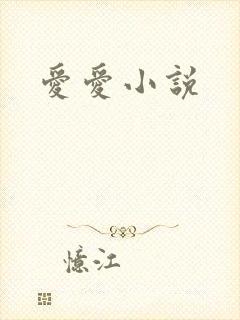 愛愛小說
憶江